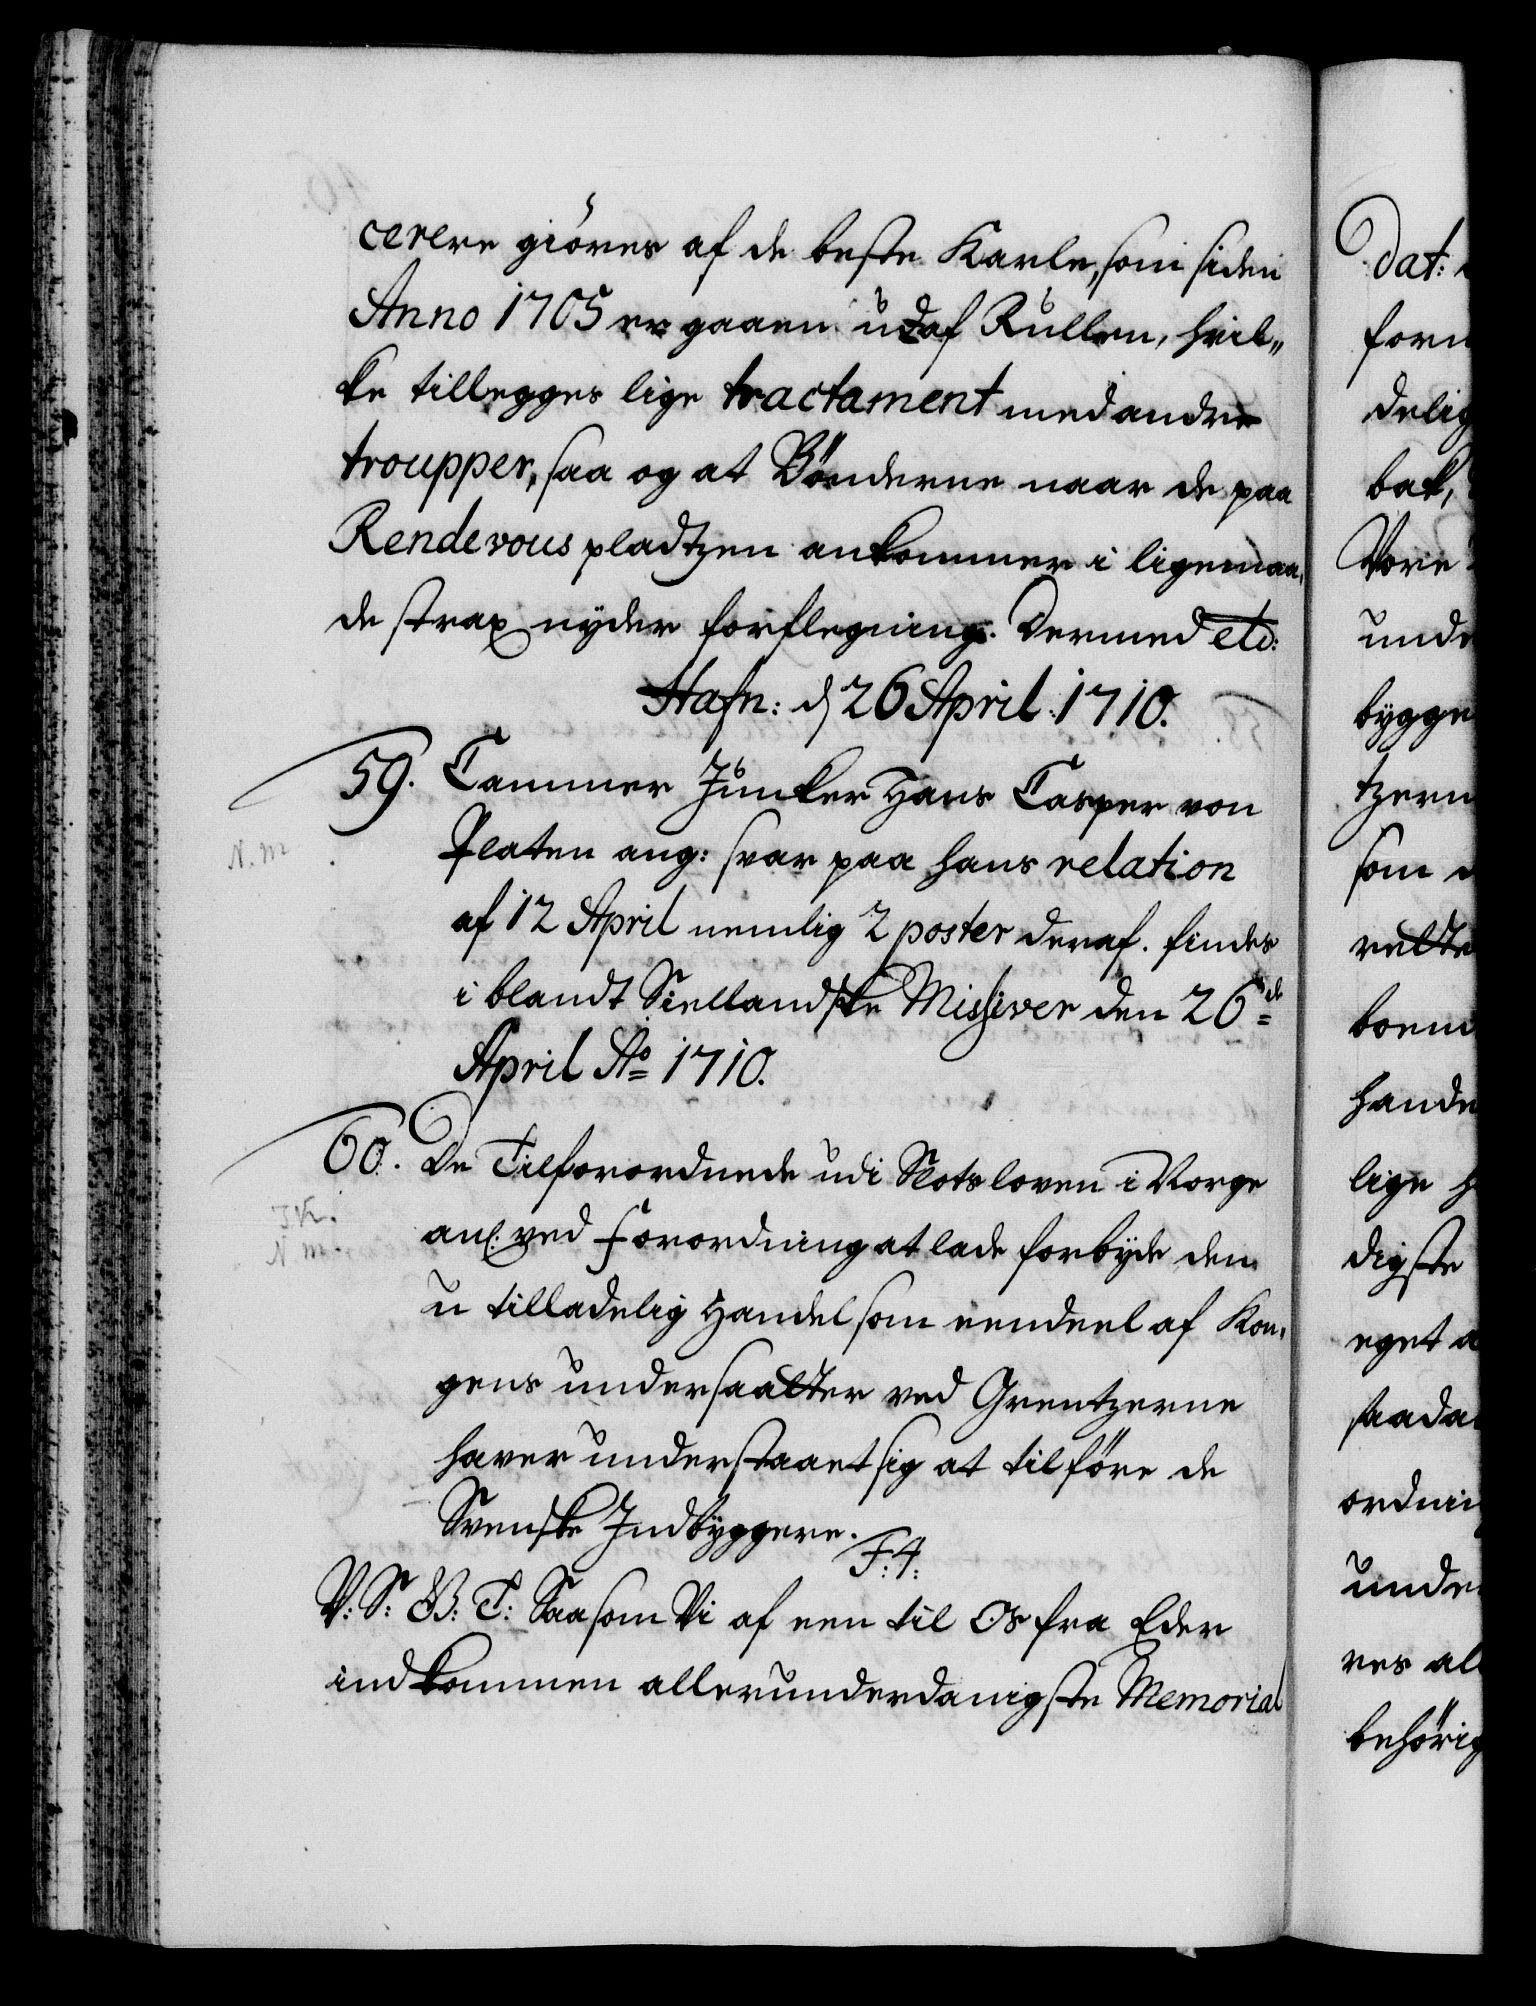 cerere giöres af de beste Karle, som siden
Anno 1705 er gaaen udaf Rullen, hvil„
ke tillegges lige tractament med andre
troupper, saa og at Bönderne naar de paa
Rendevous pladtzen ankommer i ligemaa,
de strax nyder forflegning. Dermed etc:
Hafn: d 26 April 1710.
59. Cammer Junker Hans Casper von
Platen ang: svar paa hans relation
N. m
af 12 April nemlig 2 poster deraf. findes
i blandt Siellandske Missiver den 26de
April Ao 1710.
60. De Tilforordnede udi Slotsloven i Norge
anl. ved Forordning at lade forbyde den
N m
u tilladelig Handel som eendeel af Kon,
gens undersaatter ved Grentzerne
haver understaaet sig at tilföre de
Svenske Indbyggere.
F: 4:
V: S: G: T: Saasom Vi af een til Os fra Eder
indkommen allerunderdanigste Memorial
Dat:
forn
delig
bak,
Vore
unde
bygge
tzern
som
rette
boend
hande
lige H
digste
eget a
saada
ordnin
under
res al
behörig